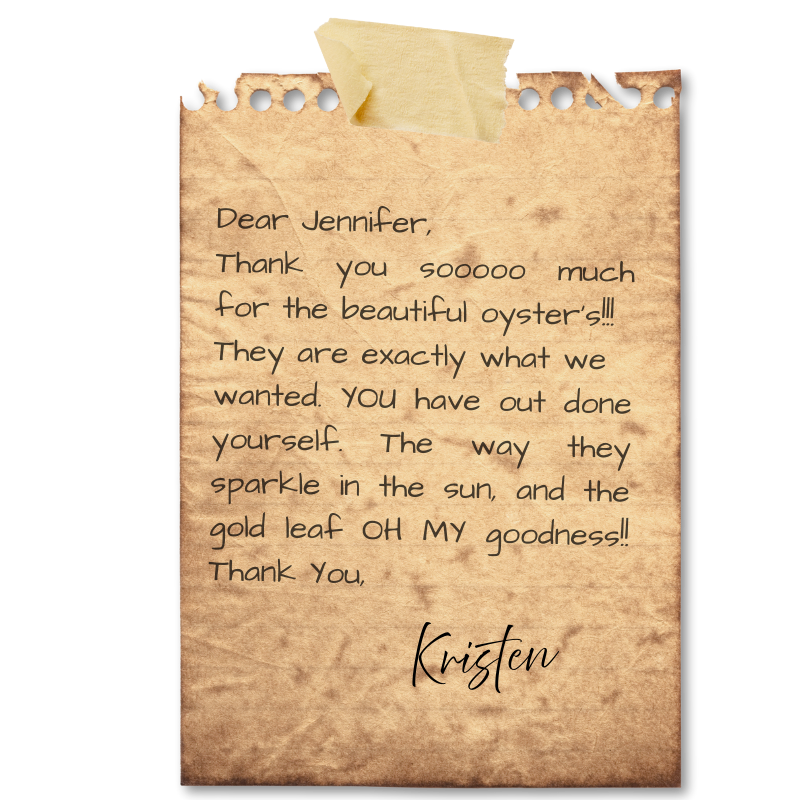 Dear Jennifer,
Thank you sooooo much
for the beautiful oyster's!!!
They are exactly what we
wanted. YOU have out done
yourself. The way they
sparkle in the sun, and the
gold leaf OH MY goodness!!
Thank You,
Kristen